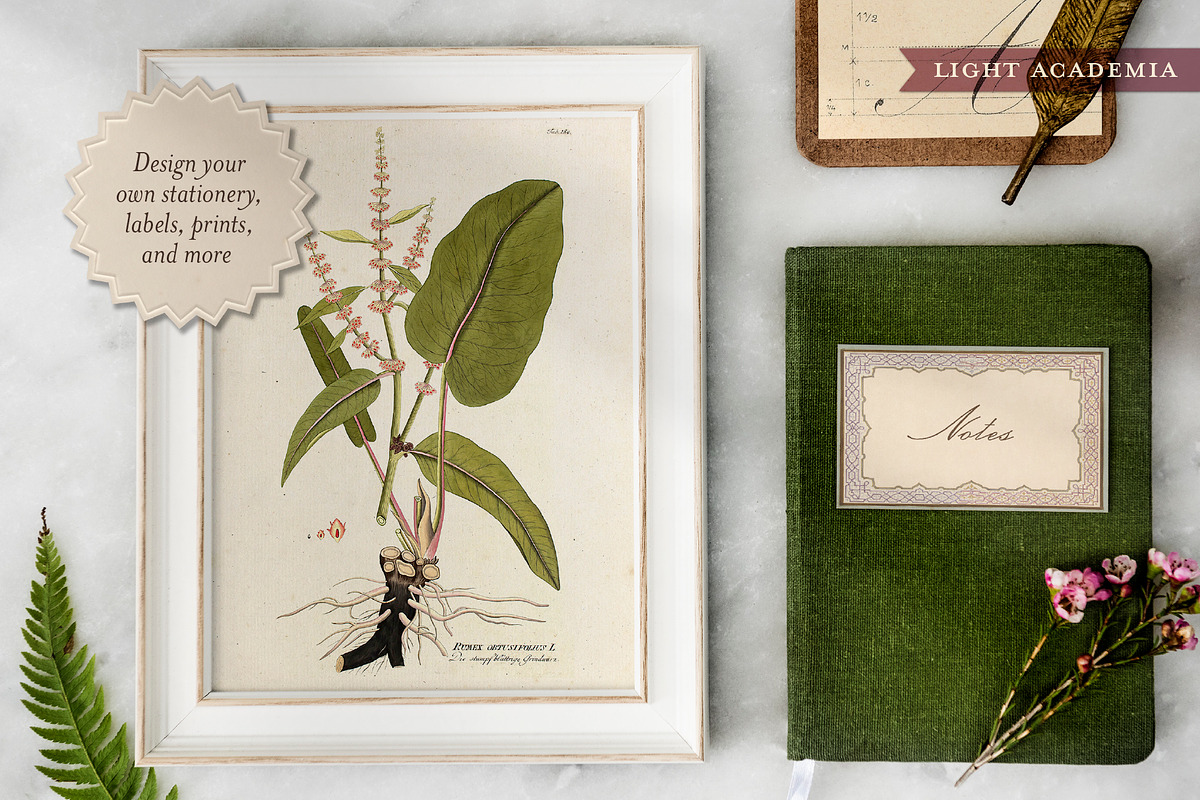 Design your
own stationery,
labels, prints,
and more
LIGHT ACADEMIA
1 1/2
M
X
1 c.
Notes
RUMEX OBTUSIFOLIUS L
Die stumpfblättrige Grindwurz.